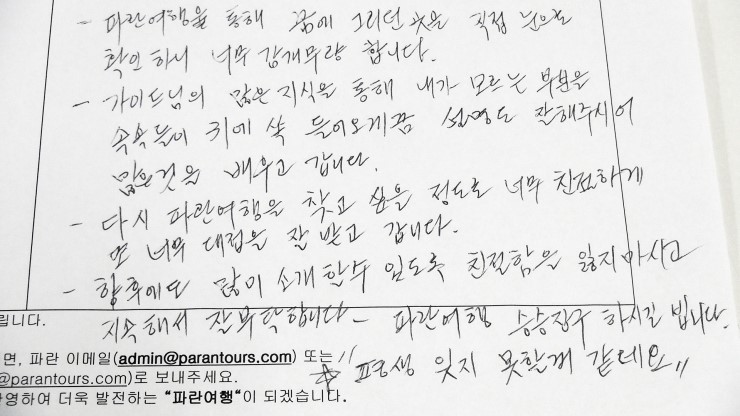 - 파란여행을 통해 꿈에 그리던 곳을 직접 눈으로
확인 하니 너무 감개무량 합니다.
- 가이드님의 많은 지식을 통해 내가 모르는 부분을
속속들이 귀에 쏙 들어오게끔 설명도 잘해주시어
많은것을 배우고 갑니다.
- 다시 파란여행을 찾고 싶을 정도로 너무 친절하게
또 너무 대접을 잘 받고 갑니다.
- 향후에도 많이 소개 할수 있도록 친절함을 잃지마시고
지속해서 잘부탁합니다 - 파란여행 승승장구 하시길 빕니다.
립니다.
면, 파란 이메일(admin@parantours.com) 또는
" ☆ 평생 잊지 못할것 같네요 "
@parantours.com)로 보내주세요.
영하여 더욱 발전하는 "파란여행"이 되겠습니다.